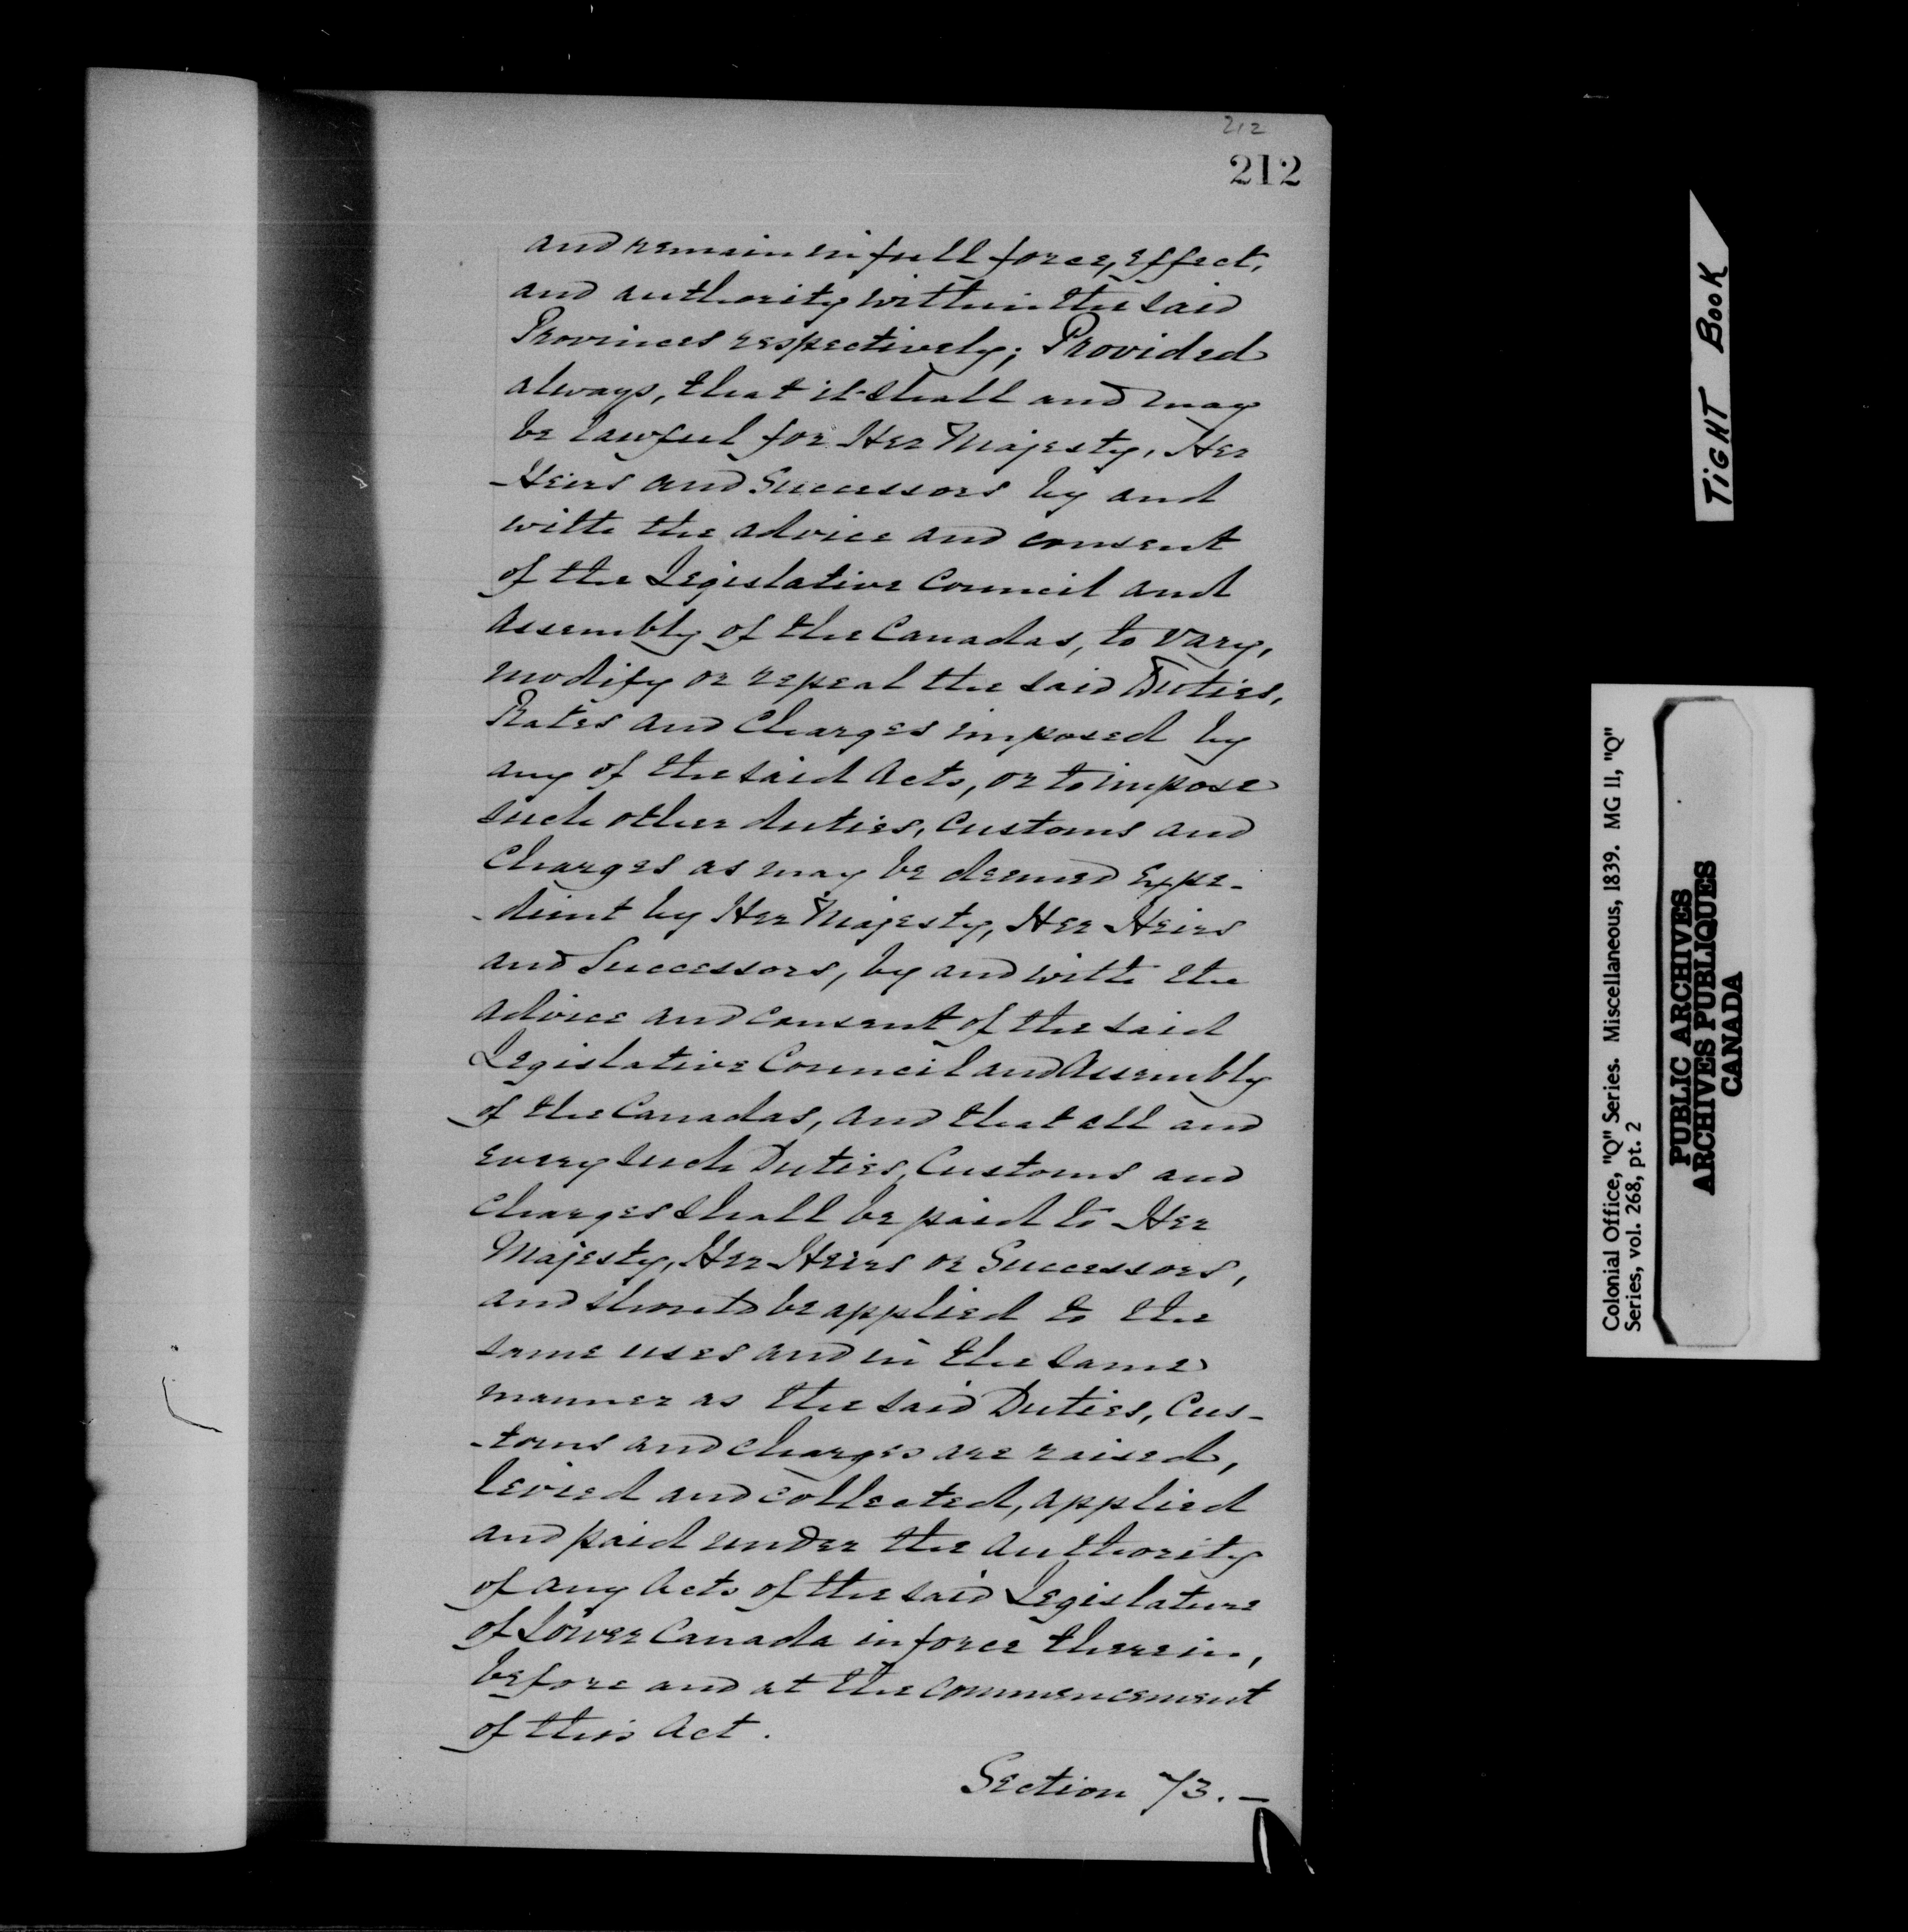 212
212
and remain in full force, effect,
and authority within the said
Provinces respectively; Provided
always, that it shall and may
be lawful for Her Majesty, Her
Heirs and Successors by and
with the advice and consent
of the Legislative Council and
Assembly of the Canadas, to vary,
modify or repeal the said Duties,
Rates and Charges imposed by
any of the said Acts, or to impose
such other duties, Customs and
Charges as may be deemed expe-
-dient by Her Majesty, Her Heirs
and Successors, by and with the
advice and consent of the said
Legislative Council and Assembly
of the Canadas, and that all and
every such Duties, Customs and
Charges shall be paid to Her
Majesty, Her Heirs or Successors,
and be applied to the
same uses and in the same
manner as the said Duties, Cus-
-toms and charges are raised,
levied and collected, applied
and paid under the authority
of any Acts of the said Legislature
of Lower Canada in force therein,
before and at the commencement
of this Act.
Section 73.—
TIGHT BOOK
Colonial Office, "Q" Series. Miscellaneous, 1839. MG 11, "Q"
Series, vol. 268, pt. 2
PUBLIC ARCHIVES
ARCHIVES PUBLIQUES
CANADA